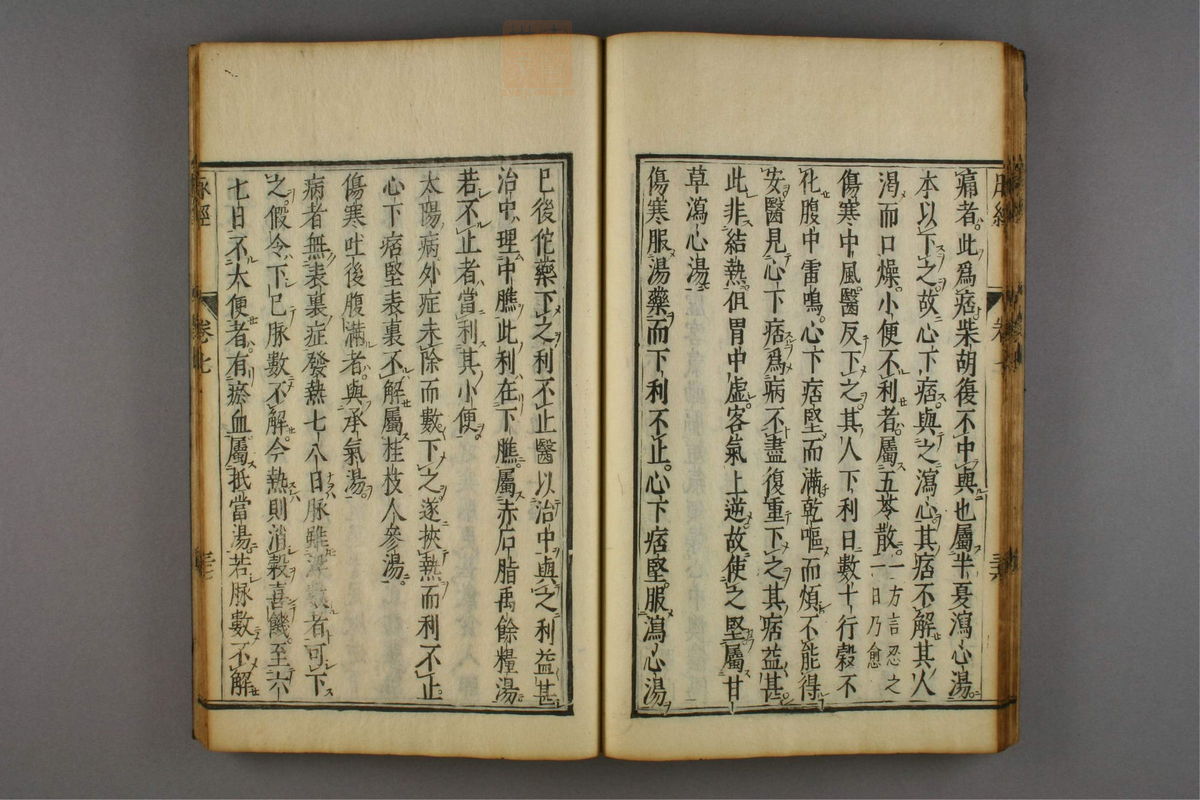 痛者此爲痞柴胡復不中與也屬半夏瀉心湯
本以下之故心下痞與之瀉心其痞不解其人
渴而口燥小便不利者屬五苓散一方言忍之一日乃愈
傷寒中風醫反下之其人下利日數十行穀不
化腹中雷鳴心下痞堅而滿乾嘔而煩不能得
安醫見心下痞爲病不盡復重下之其痞益甚
此非結熱但胃中虛客氣上逆故使之堅屬甘
草瀉心湯
傷寒服湯藥而下利不止心下痞堅服瀉心湯
已後佗藥下之利不止醫以治中與之利益甚
治中理中膲此利在下膲屬赤石脂禹餘糧湯
若不止者當利其小便
太陽病外症未除而數下之遂挾熱而利不止
心下痞堅表裏不解屬桂枝人參湯
傷寒吐後腹滿者與承氣湯
病者無表裏症發熱七八日脉雖浮數者可下
之假令下已脉數不解今熱則消穀喜饑至六
七日不大便者有瘀血屬抵當湯若脉數不解
脉經
卷七